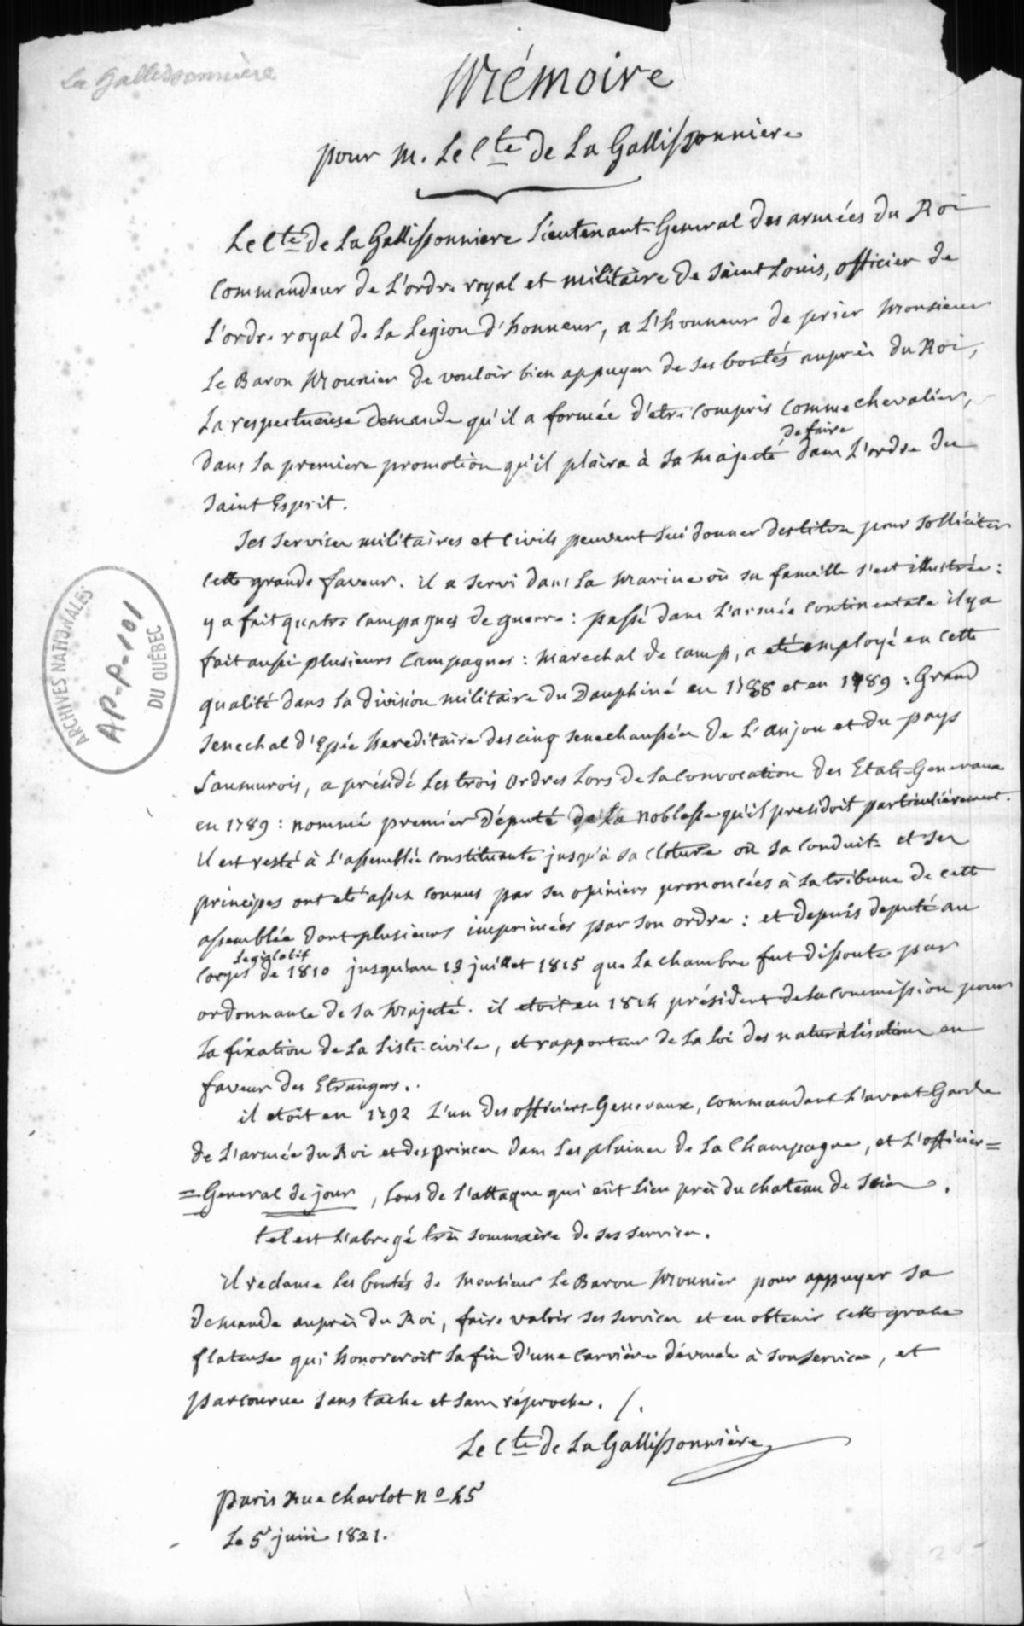 La Gallissonnière
Mémoire
pour M. Le Cte de La Gallissonniere
Le Cte de La Gallissonniere Lieutenant-General des armées du Roi
Commandeur de L'ordre royal et militaire de Saint Louis, officier de
L'ordre royal de La Legion d'honneur, a L'honneur de prier Monsieur
Le Baron Mounier de vouloir bien appuyer de ses bontés auprès du Roi,
La respectueuse demande qu'il a formée d'etre compris comme chevalier,
dans La premiere promotion qu'il plaira à Sa Majesté de faire dans L'ordre du
Saint Esprit.
Ses services militaires et civils peuvent lui donner des titres pour solliciter
cette grande faveur. il a servi dans La Marine où sa famille s'est illustrée:
y a fait quatre campagnes de guerre: passé dans L'armée continentale il y a
fait aussi plusieurs Campagnes: Marechal de camp, a eté employé en cette
qualité dans La division militaire du Dauphiné en 1788 et en 1789: Grand
Senechal d'Epée hereditaire des cinq senechaussées de L'anjou et du pays
Saumurois, a présidé Les trois ordres Lors de La convocation des Etats-Generaux
en 1789: nommé premier Député de La noblesse qu'il presidoit particulièrement.
il est resté à L'assemblée constituante jusqu'à sa cloture où sa conduite et ses
principes ont eté assez connus par ses opinions prononcées à La tribune de cette
assemblée dont plusieurs imprimées par son ordre: et depuis deputé au
Corps Legislatif de 1810 jusqu'au 13 juillet 1815 que La chambre fut dissoute par
ordonnance de Sa Majesté. il etoit en 1814 président de La commission pour
La fixation de La Liste civile, et rapporteur de La Loi des naturalisations en
faveur des Etrangers..
il etoit en 1792 L'un des officiers-Generaux, commandant L'avant Garde
de L'armée du Roi et des princes dans Les plaines de La Champagne, et L'officier=
=General de jour, Lors de L'attaque qui eût Lieu près du chateau de .
tel est L'abregé très sommaire de ses services.
il reclame Les bontés de Monsieur Le Baron Mounier pour appuyer sa
demande auprès du Roi, faire valoir ses services et en obtenir cette grace
flateuse qui honoreroit La fin d'une carrière dévouée à son service, et
parcourue sans tache et sans réproche. /.
Le Cte de La Gallissonnière
Paris Rue Charlot No 45
Le 5 juin 1821.
ARCHIVES NATIONALES
AP-P-101
DU QUÉBEC